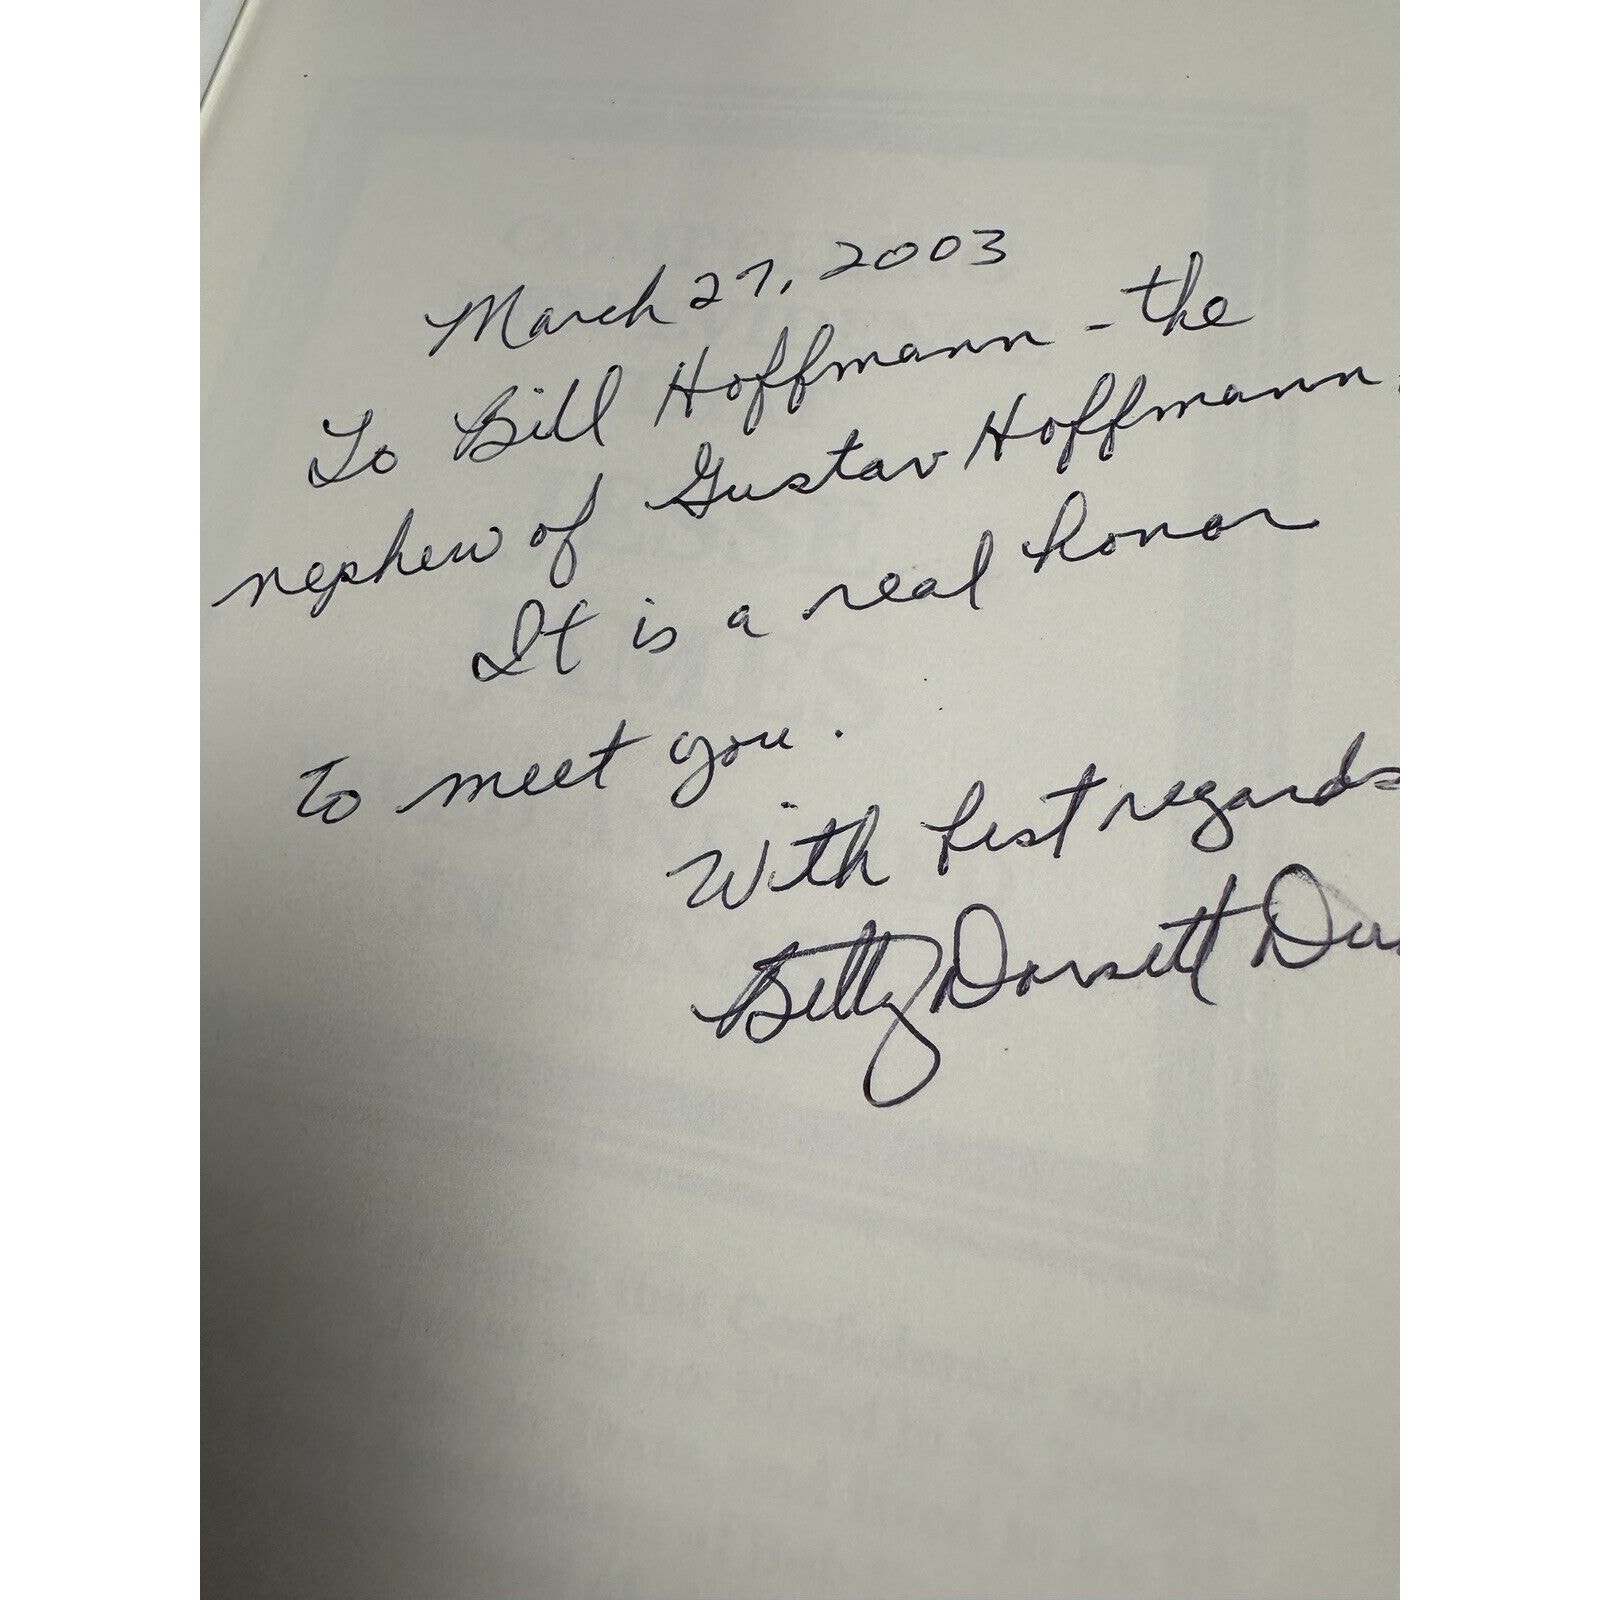 March 27, 2003
To Bill Hoffmann - the
nephew of Gustav Hoffmann.
It is a real honor
to meet you.
With best regards
Betty Dorsett Du